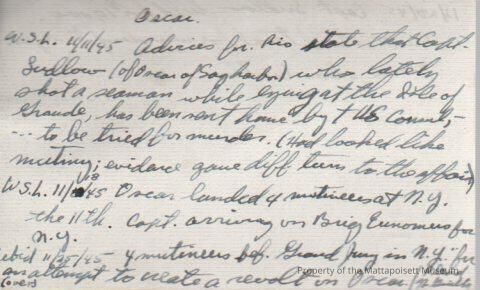 Oscar.
W.S.L. 11/11/45 Advices fr. Rio state that Capt.
Ludlow (of Oscar of Sag harbor) who lately
shot a seaman while lying at the Isle of
Grande, has been sent home by + US Consul,
--- to be tried for murder. (Had looked like
mutiny; evidence gave diff turn to the affair)
W.S.L. 11/18/45 Oscar landed 4 mutineers at N.Y.
the 11th. Capt. arriving on Brig Eunomus for
N.Y.
ibid 11/25/45 4 mutineers bef. Grand Jury in N.Y. for
an attempt to create a revolt on Oscar
(over)
Property of the Mattapoisett Museum